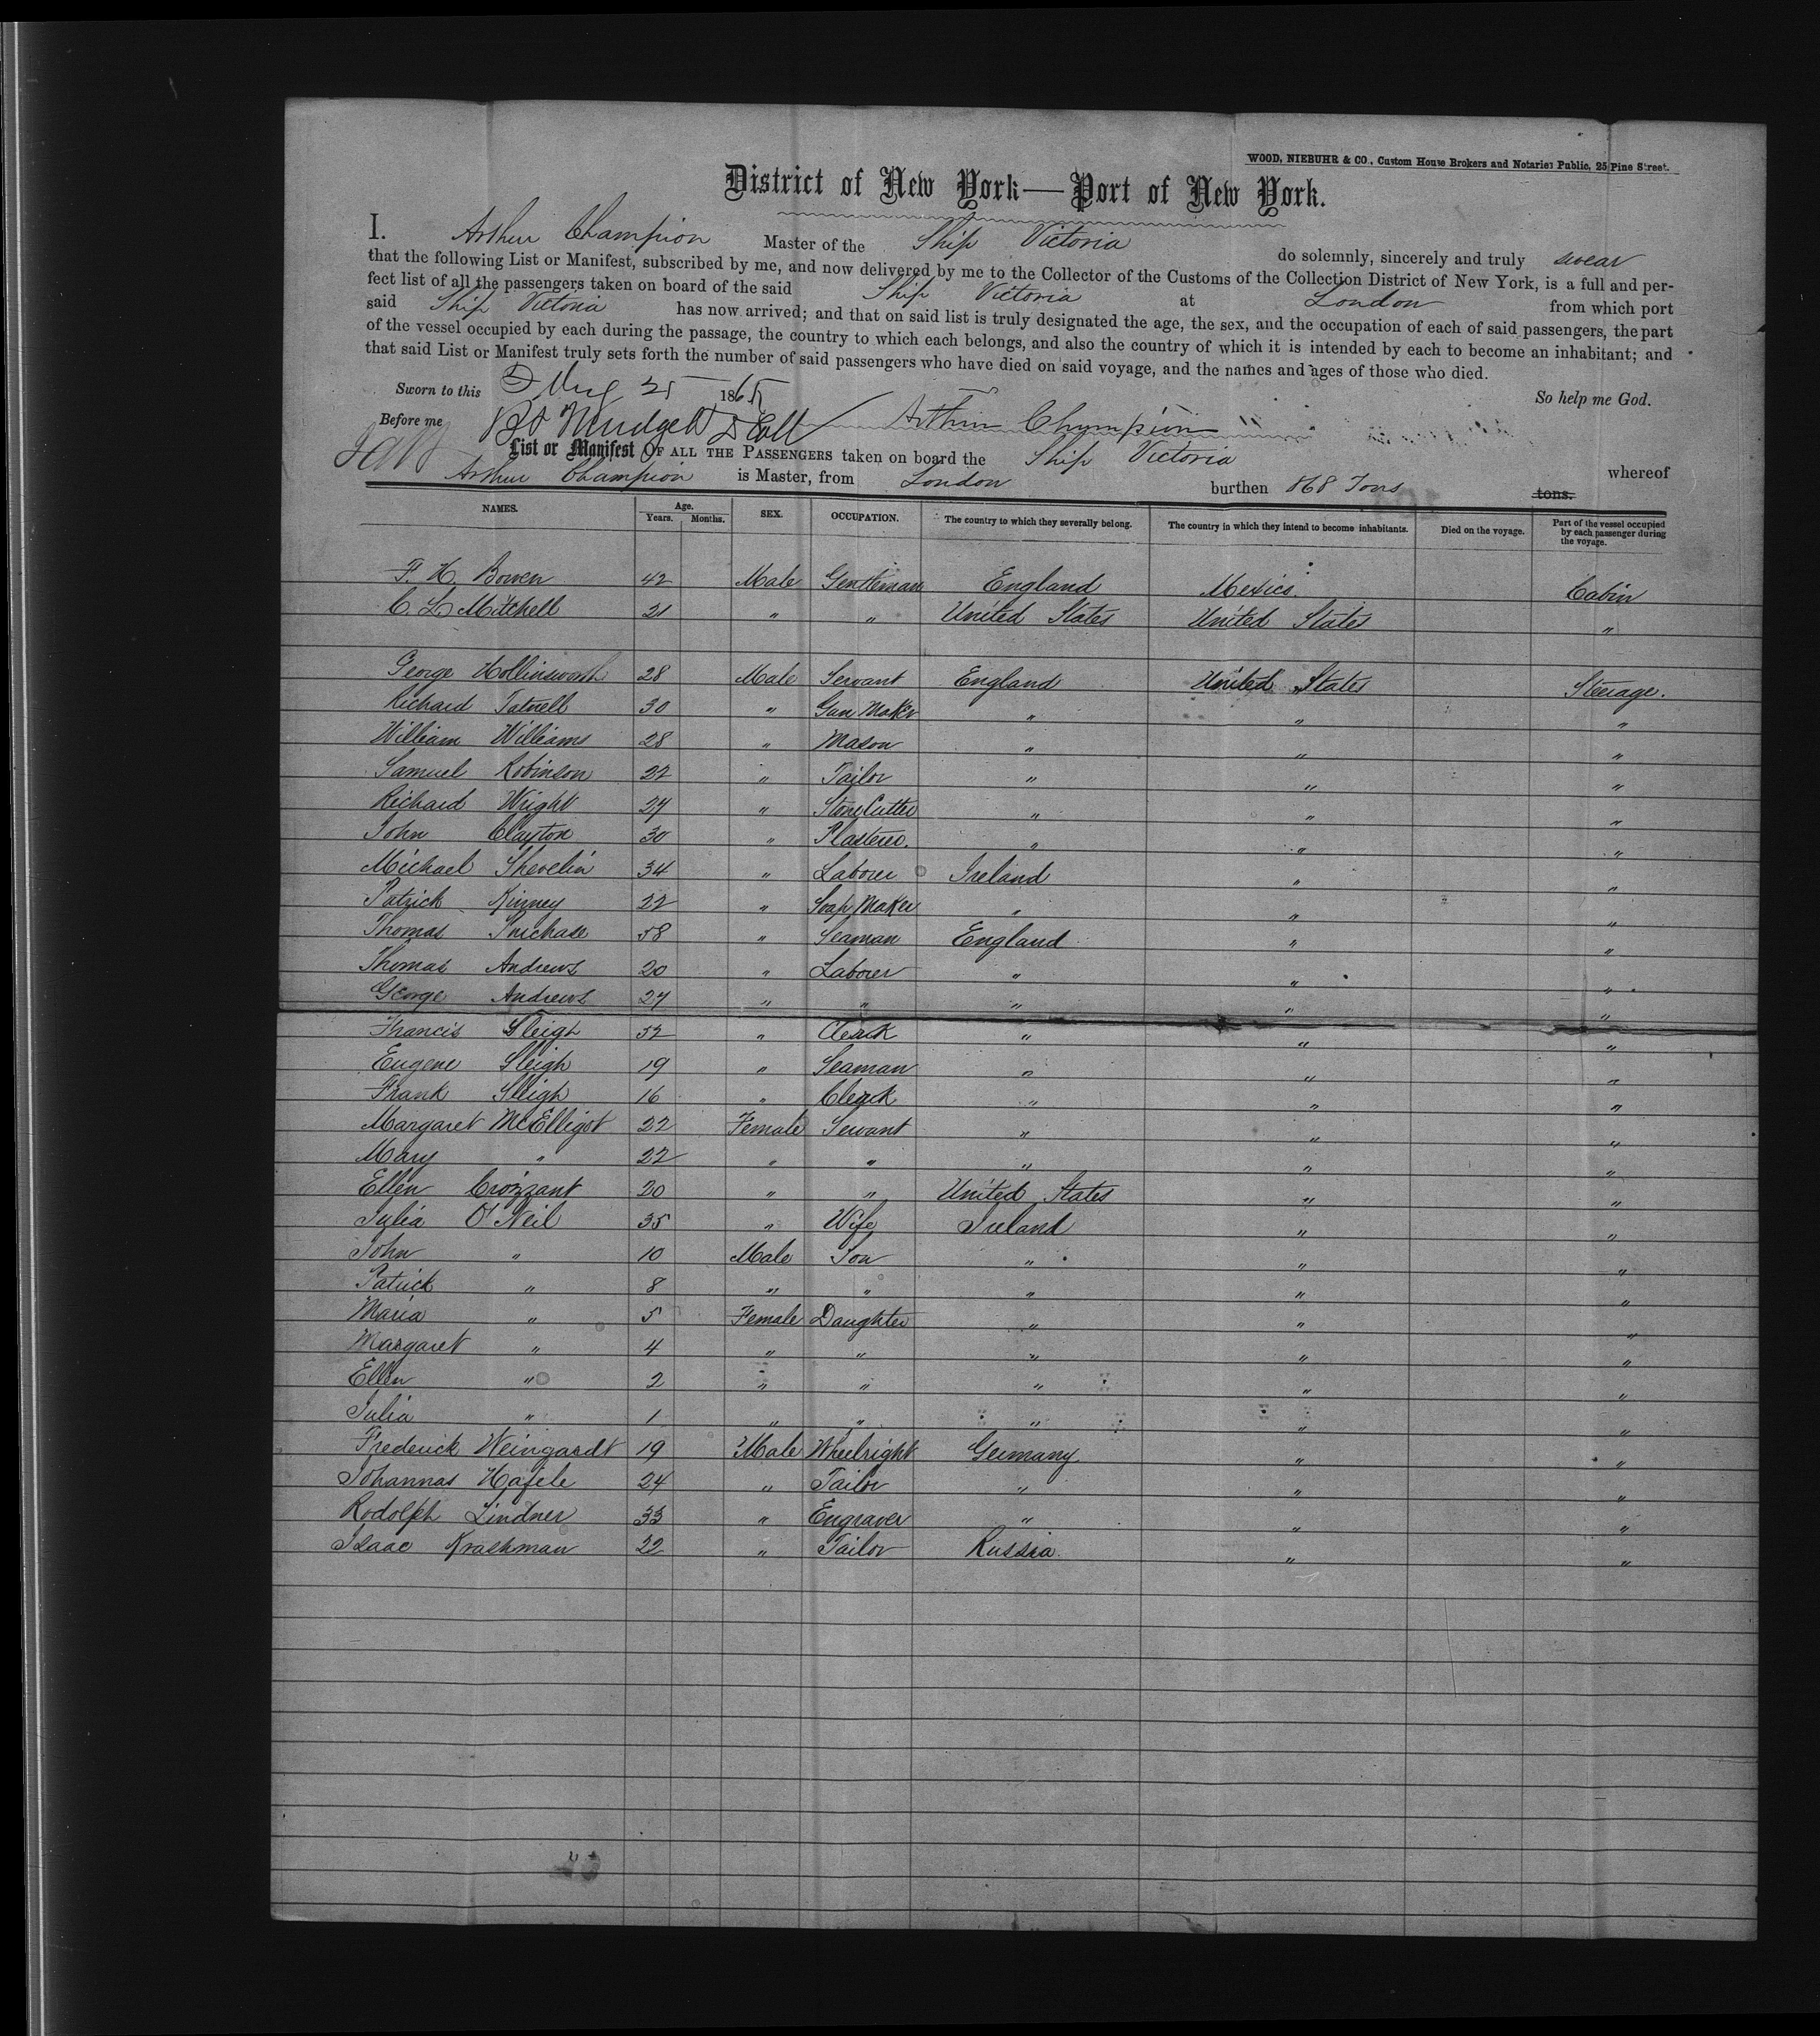 WOOD, NIEBUHR & CO., Custom House Brokers and Notaries Public, 25 Pine Street.
District of New York—Port of New York.
I. Arthur Champion Master of the Ship Victoria do solemnly, sincerely and truly swear
that the following List or Manifest, subscribed by me, and now delivered by me to the Collector of the Customs of the Collection District of New York, is a full and per-
fect list of all the passengers taken on board of the said Ship Victoria at London from which port
said Ship Victoria has now arrived; and that on said list is truly designated the age, the sex, and the occupation of each of said passengers, the part
of the vessel occupied by each during the passage, the country to which each belongs, and also the country of which it is intended by each to become an inhabitant; and
that said List or Manifest truly sets forth the number of said passengers who have died on said voyage, and the names and ages of those who died.
Sworn to this Aug 25 1865 So help me God.
Before me Mudgett D Coll Arthur Champion
List or Manifest OF ALL THE PASSENGERS taken on board the Ship Victoria whereof
Arthur Champion is Master, from London burthen 868 Tons tons.
NAMES. Age. Years. Months. SEX. OCCUPATION. The country to which they severally belong. The country in which they intend to become inhabitants. Died on the voyage. Part of the vessel occupied by each passenger during the voyage.
F. H. Bowen 42 Male Gentleman England Mexico. Cabin
C. L. Mitchell 21 " " United States United States "
George Hollinsworth 28 Male Servant England United States Steerage.
Richard Tatnell 30 " Gun Maker " " "
William Williams 28 " Mason " " "
Samuel Robinson 22 " Tailor " " "
Richard Wright 24 " Stone Cutter " " "
John Clayton 30 " Plasterer. " " "
Michael Shevelin 34 " Laborer Ireland " "
Patrick Kinney 22 " Soap Maker " " "
Thomas Purchase 58 " Seaman England " "
Thomas Andrews 20 " Laborer " " "
George Andrews 24 " " " " "
Francis Sleigh 52 " Clerk " " "
Eugene Sleigh 19 " Seaman " " "
Frank Sleigh 16 " Clerk " " "
Margaret McElligot 22 Female Servant " " "
Mary " 22 " " " " "
Ellen Crozzant 20 " " United States " "
Julia O'Neil 35 " Wife Ireland " "
John " 10 Male Son " " "
Patrick " 8 " " " " "
Maria " 5 Female Daughter " " "
Margaret " 4 " " " " "
Ellen " 2 " " " " "
Julia " 1 " " " " "
Frederick Weingardt 19 Male Wheelright Germany " "
Johannas Hafele 24 " Tailor " " "
Rodolph Lindner 33 " Engraver " " "
Isaac Krashman 22 " Tailor Russia. " "